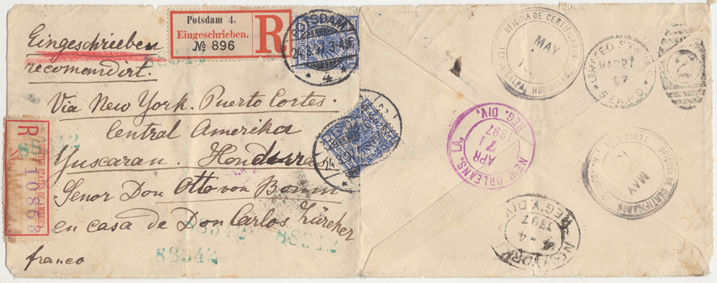 Potsdam 4.
Eingeschrieben.
№ 896
R
Eingeschrieben
recomandirt.
Via New York. Puerto Cortes.
Central Amerika
Yuscaran. Honduras
Senor Don Otto von Bonin
en casa de Don Carlos Zürcher
franco
R
88542
POTSDAM
4
OFICINA DE CERTIFICADOS
MAY
UNITED STATES
NEW ORLEANS, LA.
APR
7
1897
REG. DIV.
OFICINA DE CERTIFICADOS
MAY
NEW YORK
4-4
1897
REG'Y. DIV.